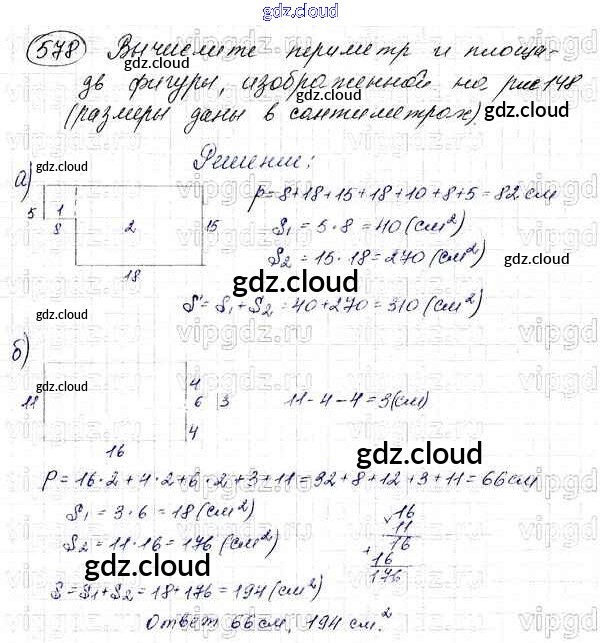 gdz.cloud
578 Вычислите периметр и площа-
дь фигуры, изображенной на рис 148
(размеры даны в сантиметрах).
gdz.cloud
Решение:
а) gdz.cloud
P = 8+18+15+18+10+8+5 = 82 см
5 1 8 2 15 18
S₁ = 5 · 8 = 40 (см²)
S₂ = 15 · 18 = 270 (см²)
gdz.cloud
S = S₁ + S₂ = 40 + 270 = 310 (см²)
б) gdz.cloud
11 4 6 3 4 16
11 - 4 - 4 = 3 (см)
gdz.cloud
P = 16·2 + 4·2 + 6·2 + 3 + 11 = 32 + 8 + 12 + 3 + 11 = 66 см
S₁ = 3·6 = 18 (см²)
S₂ = 11·16 = 176 (см²)
16
11
16
+ 16
176
gdz.cloud
S = S₁ + S₂ = 18 + 176 = 194 (см²)
Ответ 66 см, 194 см²